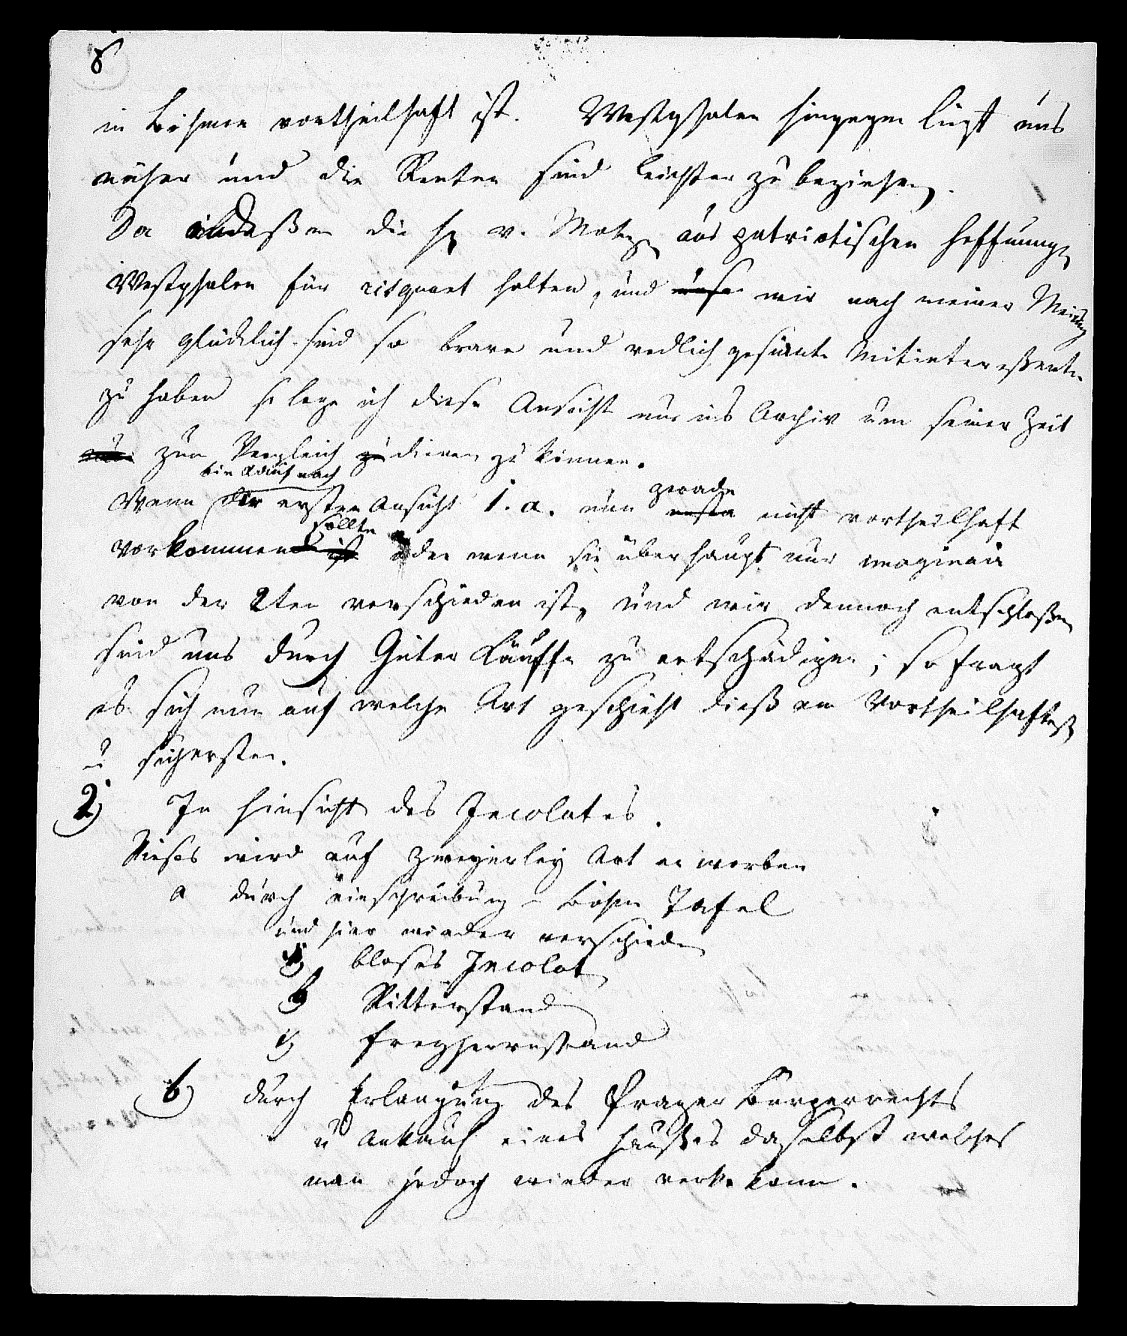 8
in Böhmen vortheilhaft ist. Westphalen hingegen liegt uns
näher und die Renten sind leichter zu beziehen.
Da indeßen die H v. Motz aus patriotischen Hoffnung
Westphalen für risquant halten, und wir nach meiner Meinung
sehr glücklich sind so brave und redlich gesinnte Mitinteressenten
zu haben so lege ich diese Ansicht nur ins Archiv um seiner Zeit
zum Vergleich dienen zu können.
ein Kauf nach
Wenn der ersten Ansicht 1. a. nun gerade nicht vortheilhaft
vorkommen sollte oder wenn sie überhaupt nur imaginair
von der 2ten verschieden ist, und wir dennoch entschloßen
sind uns durch Güter Käuffe zu entschädigen; so fragt
es sich nun auf welche Art geschieht dieß am Vortheilhaftest
u sichersten.
2) In Hinsicht des Incolates.
Dieses wird auf zweyerley Art erworben
a durch einschreibung Böhm Tafel
und hier wieder verschieden
a) bloses Incolat
b) Ritterstand
c) Freyherrnstand
b) durch Erlangung des Prager Bürgerrechts
u Ankauf eines Haußes daselbst welches
man jedoch wieder verk. kann.